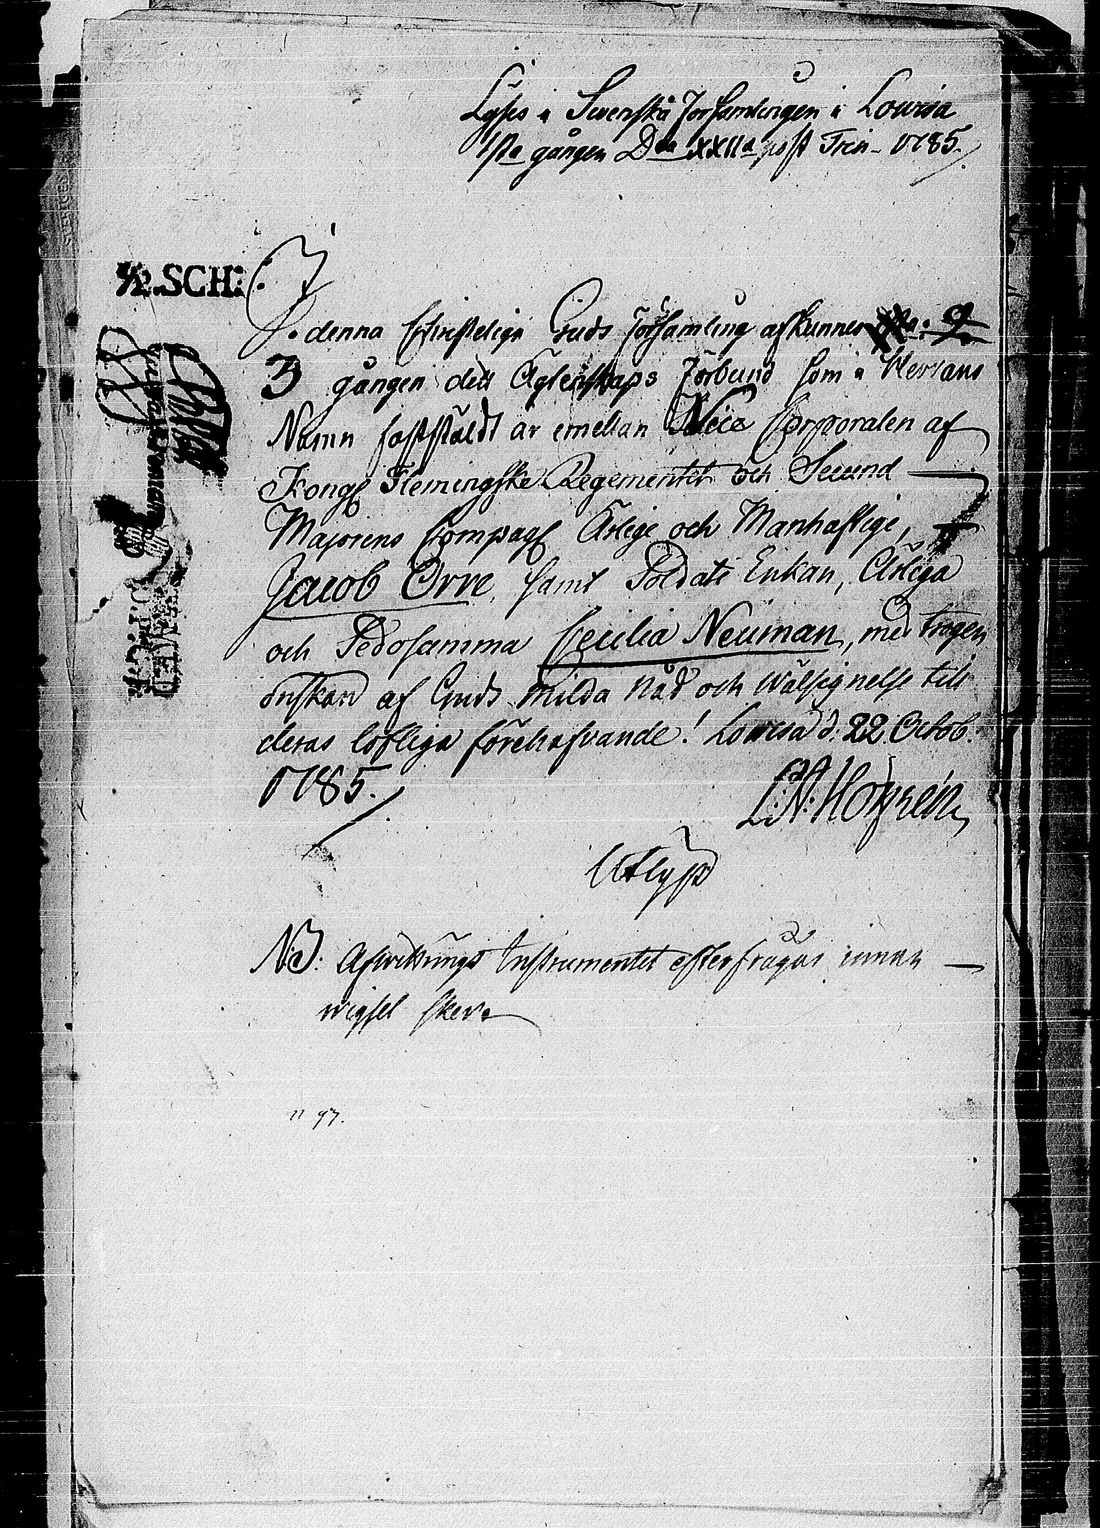 Lyses i Swenska Församlingen i Lowisa
1sta gången Dca XXIIa post Trin. 1785.
½.SCH:
I denna Christeliga Guds Församling afkunnes
3 gången dett Ägtenskaps Förbund som i Herrans
Namn fastställdt är emellan Vice Corporalen af
Kongl Flemingske Regementet och Secund
Majorens Compagl Ärlige och Manhaftige,
Jacob Orre, samt Soldate Enkan, Ärliga
och Sedosamma Cecilia Neuman, med trogen
önskan af Guds milda nåd och wälsignelse till
deras lofliga förehafvande! Lowisa d. 22 Octob.
1785.
Utlyst
NB: Afwittrings Instrumentet efterfrågas innan
wigsel sker.
11 97.